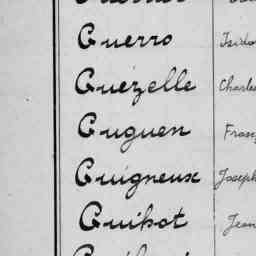 Guerro Isido
Guézelle Charles
Guguen Franç
Guigneux Joseph
Guihot Jean